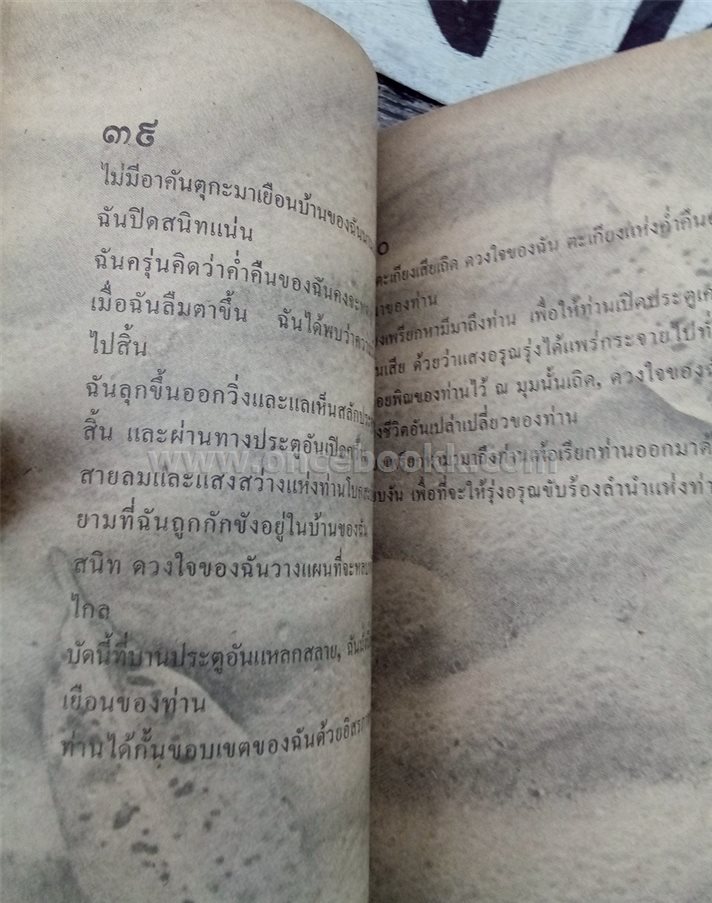 ๓๙
ไม่มีอาคันตุกะมาเยือนบ้านของฉัน
ฉันปิดสนิทแน่น
ฉันครุ่นคิดว่าค่ำคืนของฉันคงจะ
เมื่อฉันลืมตาขึ้น ฉันได้พบว่า
ไปสิ้น
ฉันลุกขึ้นออกวิ่งและแลเห็นสลัก
สิ้น และผ่านทางประตูอันเปิด
สายลมและแสงสว่างแห่งท่าน
ยามที่ฉันถูกกักขังอยู่ในบ้านของฉัน
สนิท ดวงใจของฉันวางแผนที่จะ
ไกล
บัดนี้ที่บานประตูอันแหลกสลาย,
เยือนของท่าน
ท่านได้กั้นขอบเขตของฉันด้วย
๐
ตะเกียงเสียเถิด ดวงใจของฉัน ตะเกียงแห่งค่ำคืน
ของท่าน
เพรียกหามีมาถึงท่าน เพื่อให้ท่านเปิดประตู
เสีย ด้วยว่าแสงอรุณรุ่งได้แพร่กระจายไปที่
พิณของท่านไว้ ณ มุมนั้นเถิด, ดวงใจของ
ชีวิตอันเปล่าเปลี่ยวของท่าน
มาถึงท่าน เพื่อเรียกท่านออกมา
เพื่อที่จะให้รุ่งอรุณขับร้องลำนำแห่ง
www.oncebookk.com